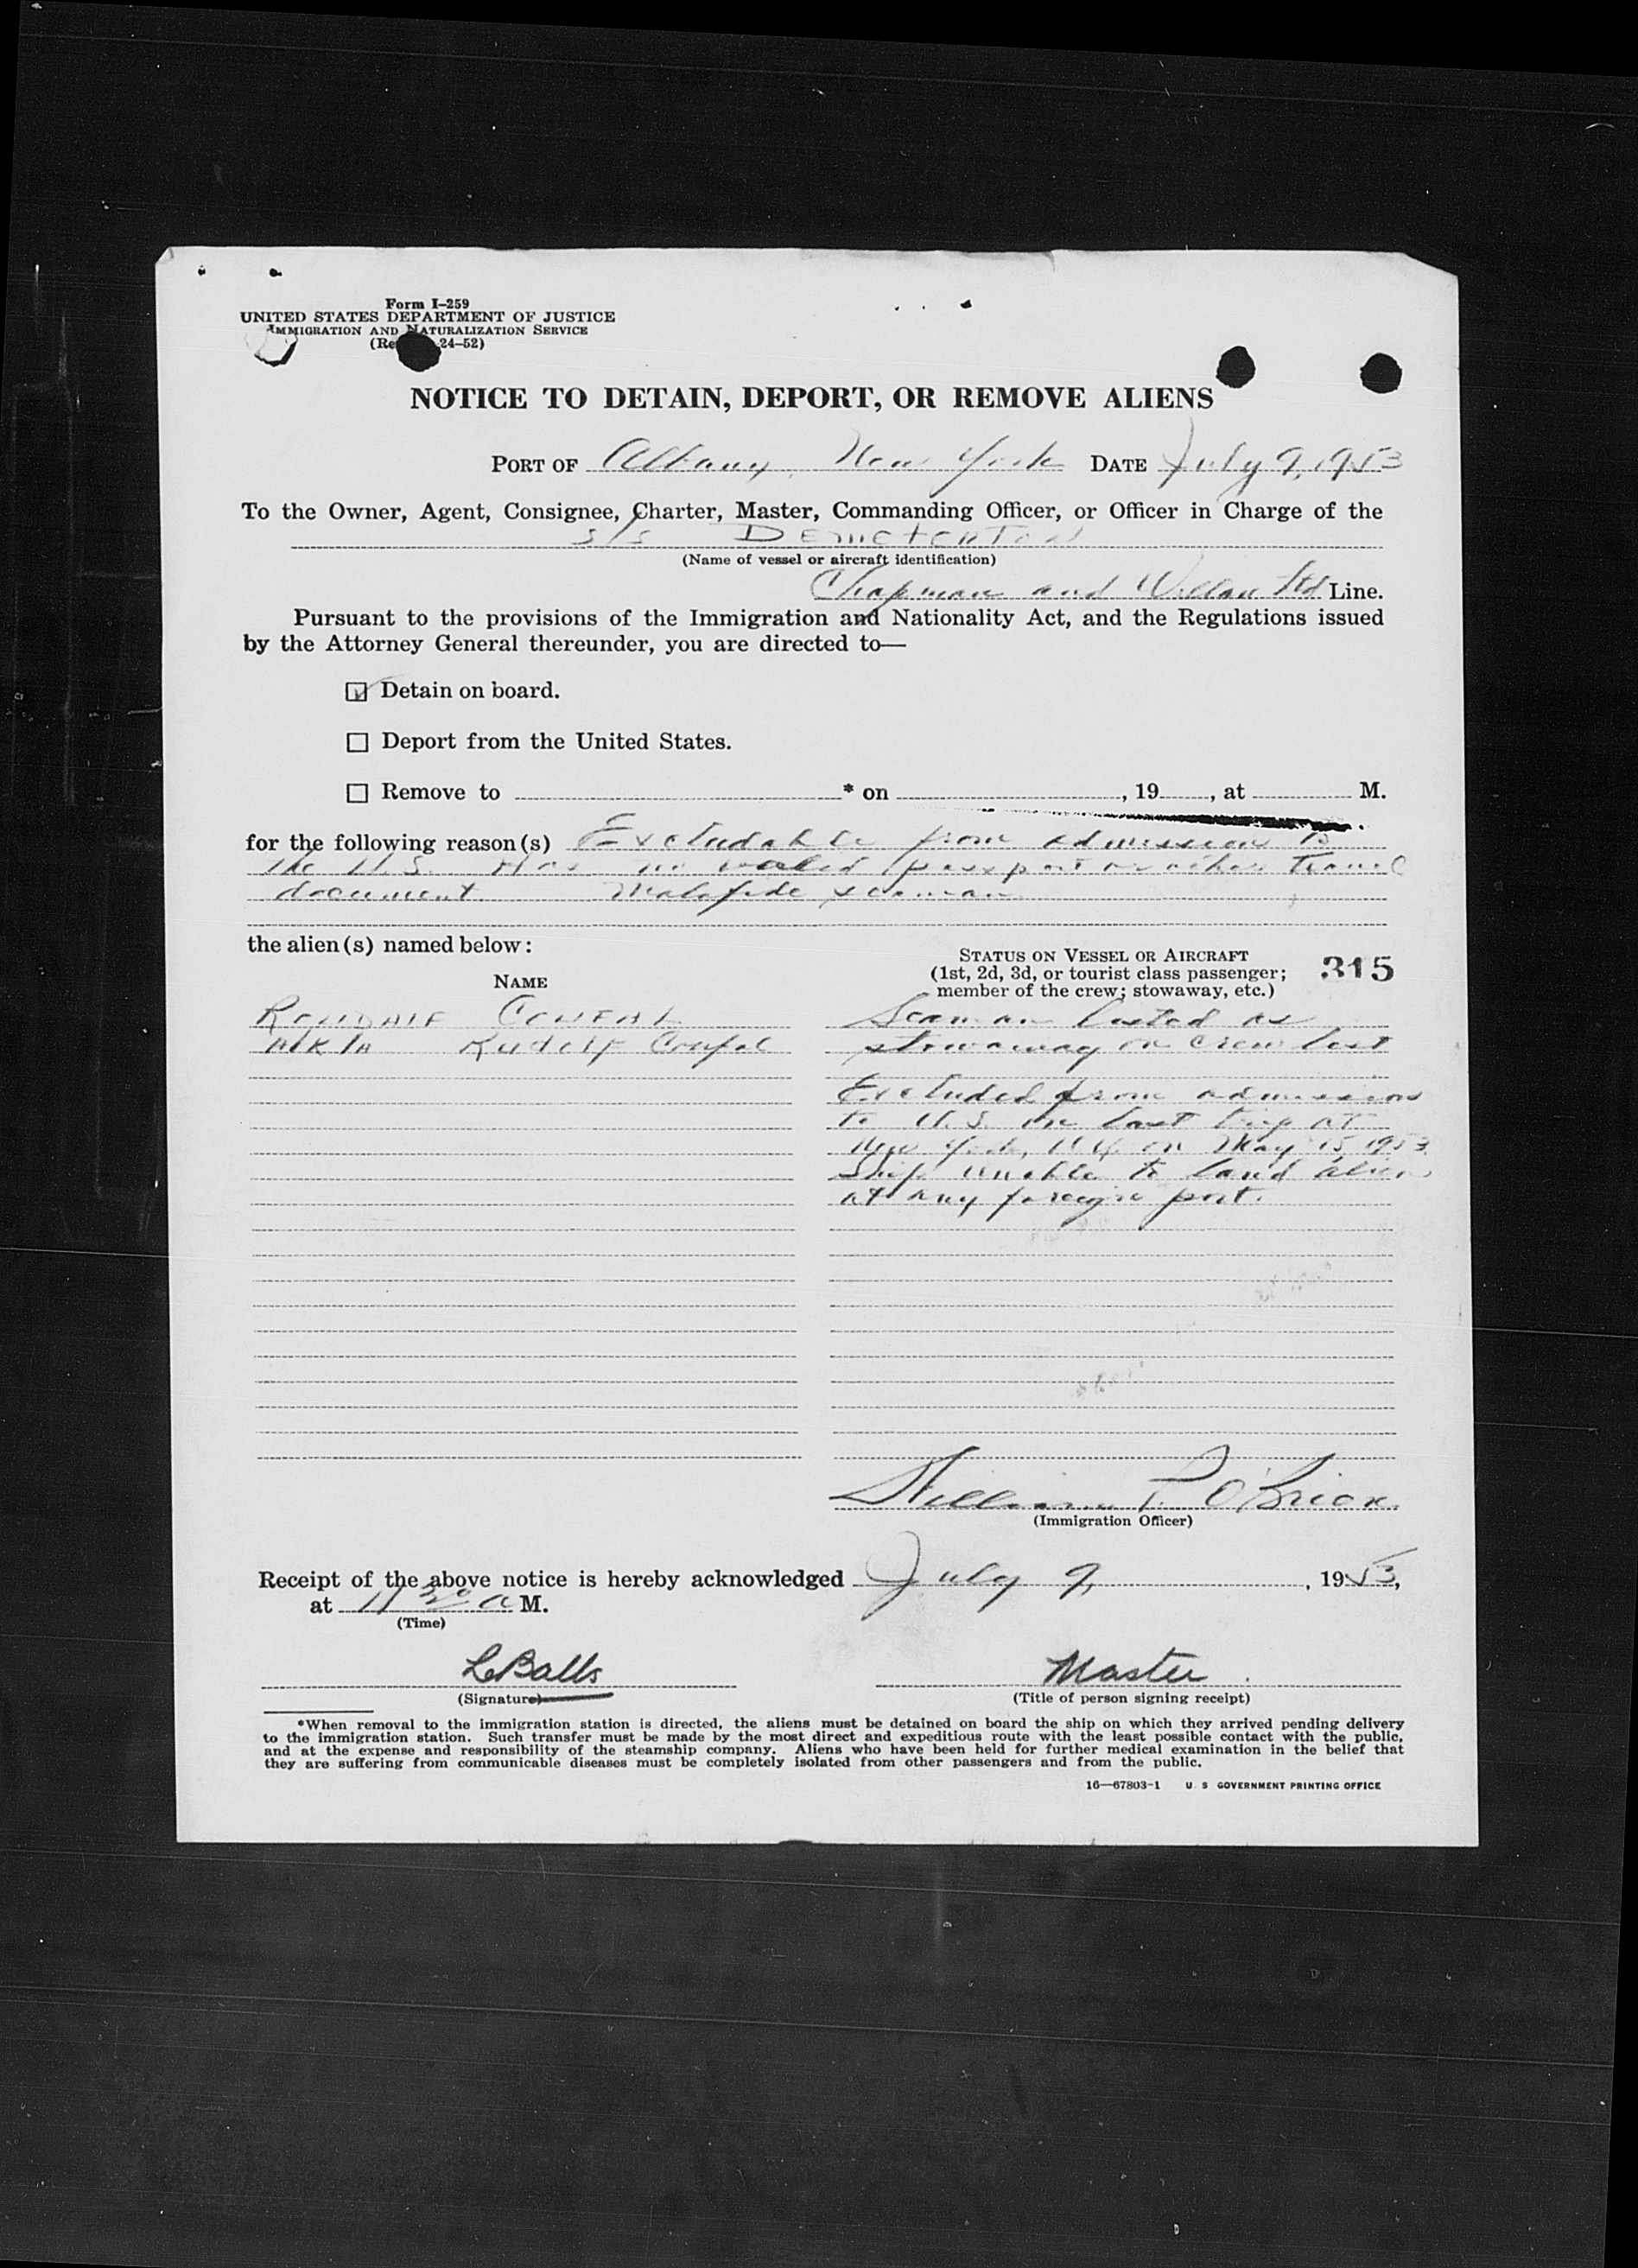 Form I-259
UNITED STATES DEPARTMENT OF JUSTICE
IMMIGRATION AND NATURALIZATION SERVICE
(Re 24-52)
NOTICE TO DETAIN, DEPORT, OR REMOVE ALIENS
PORT OF Albany, New York DATE July 9, 1953
To the Owner, Agent, Consignee, Charter, Master, Commanding Officer, or Officer in Charge of the
s/s Demeterton
(Name of vessel or aircraft identification)
Chapman and Willan Ltd Line.
Pursuant to the provisions of the Immigration and Nationality Act, and the Regulations issued
by the Attorney General thereunder, you are directed to—
☑ Detain on board.
☐ Deport from the United States.
☐ Remove to * on , 19 , at M.
for the following reason(s) Excludable from admission to
the U.S. Has no valid passport or other travel
document. Malafide seaman
the alien(s) named below:
STATUS ON VESSEL OR AIRCRAFT
(1st, 2d, 3d, or tourist class passenger;
member of the crew; stowaway, etc.)
315
NAME
Seaman listed as
A/K/A Rudolf
stowaway on crew list
Excluded from admission
to U.S. on last trip at
New York, N.Y. on May 15, 1953
Ship unable to land alien
at any foreign port.
William P. O'Brien
(Immigration Officer)
Receipt of the above notice is hereby acknowledged July 9, , 1953,
at 11 30 a M.
(Time)
L Balls
Master
(Signature)
(Title of person signing receipt)
*When removal to the immigration station is directed, the aliens must be detained on board the ship on which they arrived pending delivery
to the immigration station. Such transfer must be made by the most direct and expeditious route with the least possible contact with the public,
and at the expense and responsibility of the steamship company. Aliens who have been held for further medical examination in the belief that
they are suffering from communicable diseases must be completely isolated from other passengers and from the public.
16—67803-1 U. S GOVERNMENT PRINTING OFFICE